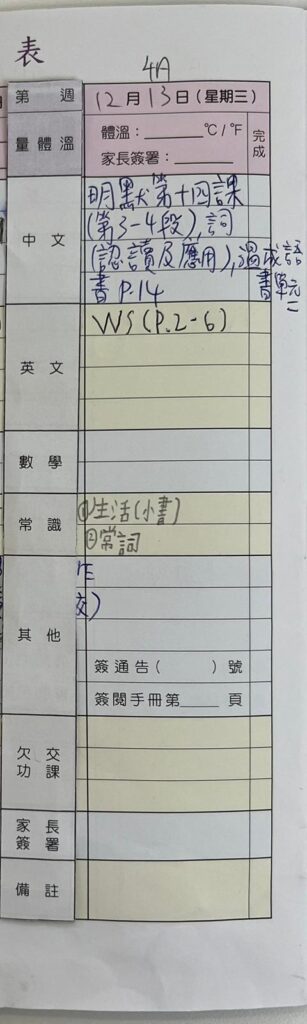 表
4A
第 週 12月13日(星期三)
量體溫 體溫：______ °C/°F 完成
家長簽署：______
中文 明默第十四課
(第3-4段),詞
(認讀及應用),溫成語
書P.14 書單元二
英文 WS(P.2-6)
數學
常識 ①生活(小書)
②常詞
其他
簽通告( )號
簽閱手冊第____頁
欠交功課
家長簽署
備註